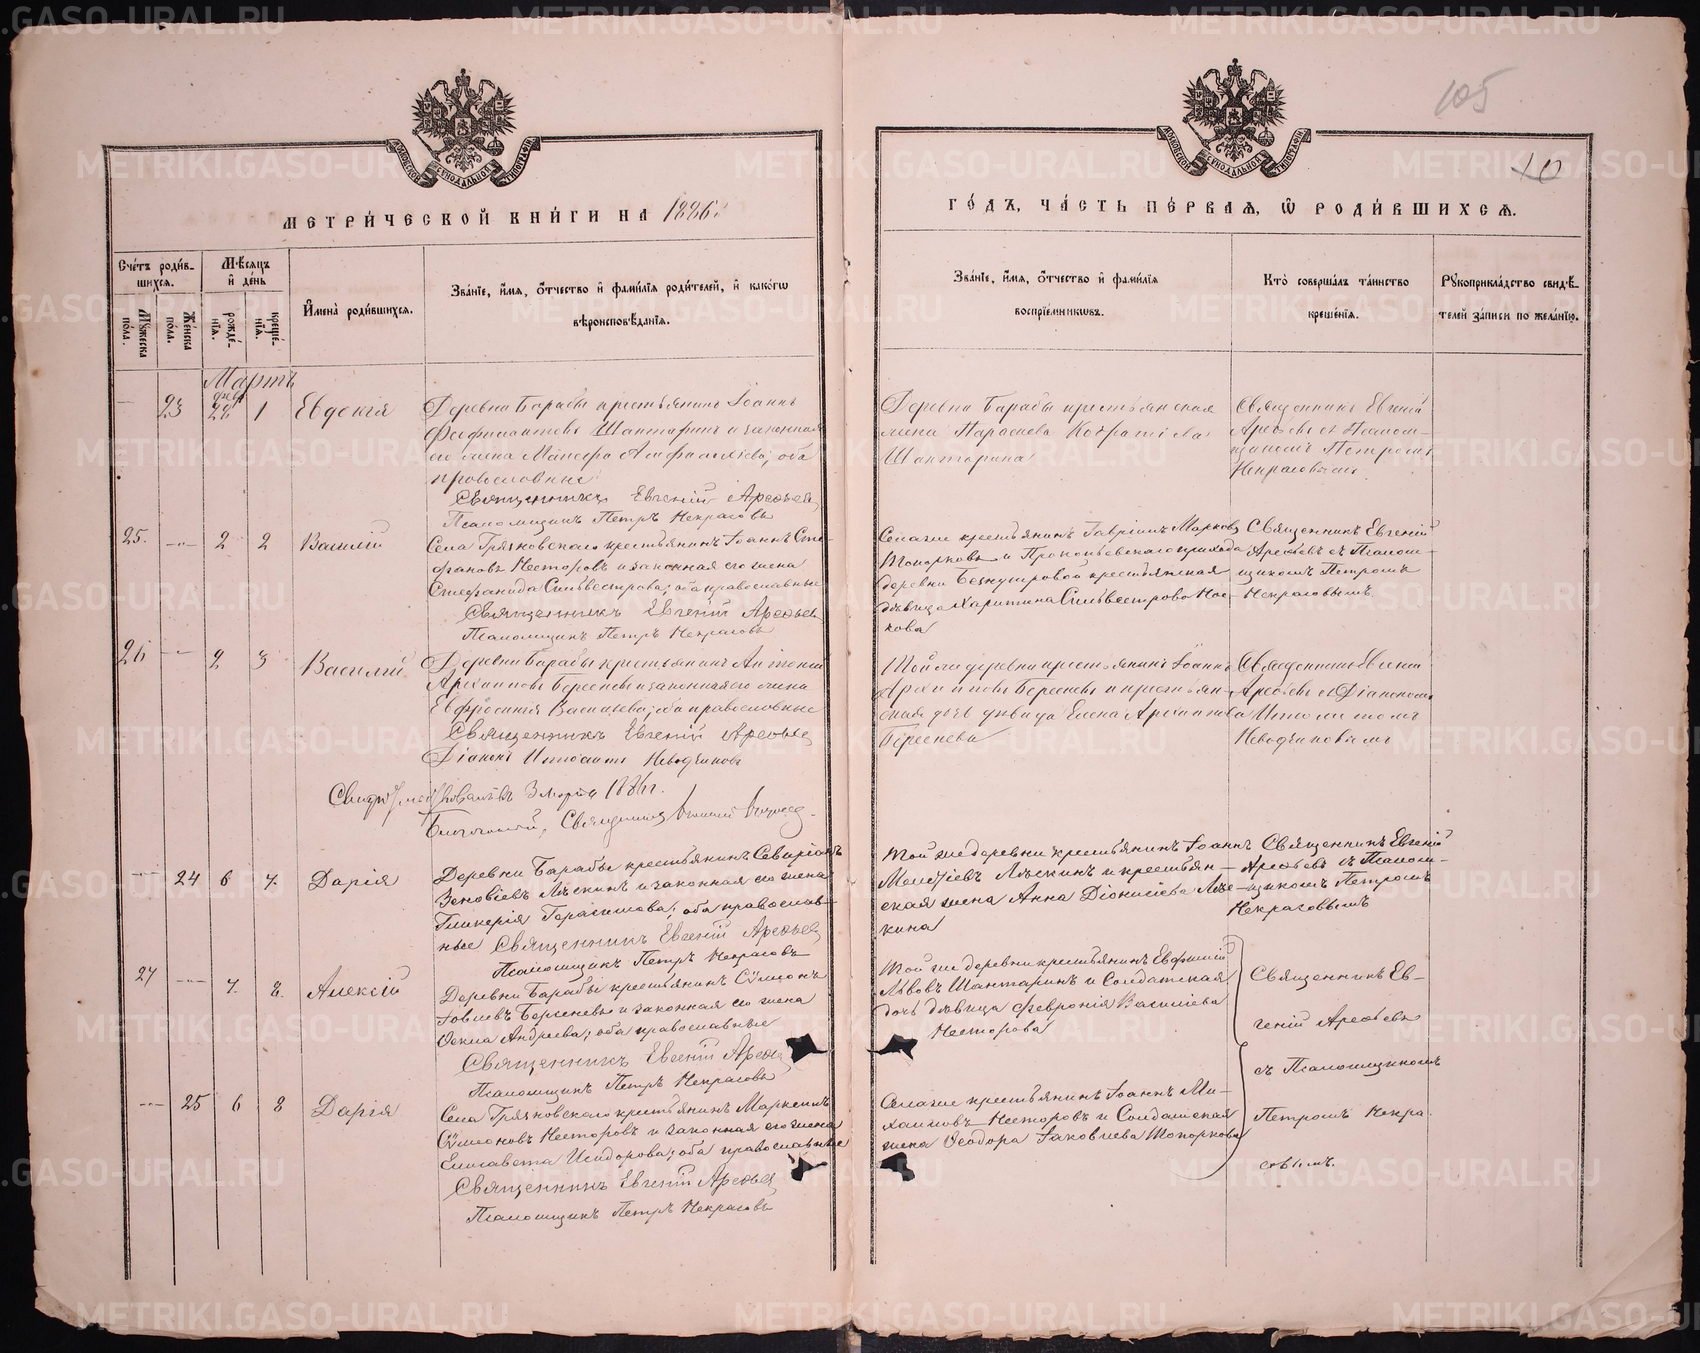 105
10
МОСКОВСКОЙ СѴНОДАЛЬНОЙ ТИПОГРАФІИ
МОСКОВСКОЙ СѴНОДАЛЬНОЙ ТИПОГРАФІИ
МЕТРИ́ЧЕСКОЙ КНИ́ГИ НА 1886
ГО́ДЪ, ЧА́СТЬ ПЕ́РВАЯ, Ѡ РОДИ́ВШИХСЯ.
Сче́тъ роди́в-
шихся.
Му́жеска по́ла.
Же́нска по́ла.
Мѣ́сяцъ
и де́нь
рожде́-
нїя.
креще́-
нїя.
И́мена̀ роди́вшихся.
Зва́нїе, и́мя, о́тчество и фами́лїя роди́телей, и како́гѡ
вѣроисповѣ́данїя.
Зва́нїе, и́мя, о́тчество и фами́лїя
воспрїе́мникѡвъ.
Кто̀ соверша́лъ та́инство
креще́нїя.
Рукоприкла́дство свидѣ́-
телей за́писи по жела́нїю.
Мартъ
23 февр. 22 1 Евдокія
Деревни Барабы крестьянинъ Іоаннъ
Шантаринъ и законная
его жена оба
православные
Священникъ Евгеній Арефьев
Псаломщикъ Петръ Некрасовъ
Деревни Барабы крестьянская
жена Параскева
Шантарина
Священникъ Евгеній
Арефьевъ съ Псалом-
щикомъ Петромъ
Некрасовымъ
25. 2 2 Василій
Села Грязновскаго крестьянинъ Іоаннъ Сте-
фановъ Несторовъ и законная его жена
Стефанида Сильвестрова; оба православные
Священникъ Евгеній Арефьев
Псаломщикъ Петръ Некрасовъ
Села же крестьянинъ Гавріилъ Марковъ
Топорковъ и Прокопьевскаго прихода
деревни крестьянская
дѣвица Харитина Сильвестрова Нос-
кова
Священникъ Евгеній
Арефьевъ съ Псалом-
щикомъ Петромъ
Некрасовымъ.
26 2 3 Василій
Деревни Барабы крестьянинъ Антоній
Архиповъ Береневъ и законная его жена
Евфросинія Васильева; оба православные
Священникъ Евгеній Арефьев
Діаконъ Ипполитъ
Той же деревни крестьянинъ Іоаннъ
Архиповъ и крестьян-
ская дочь дѣвица Елена Архипова
Священникъ Евгеній
Арефьевъ съ Діакономъ
Ипполитомъ
3 марта 1886 г.
Священникъ
24 6 7. Дарія
Деревни Барабы крестьянинъ Северіанъ
Зеновіевъ Лѣскинъ и законная его жена
Гликерія Герасимова; оба православ-
ные Священникъ Евгеній Арефьев
Псаломщикъ Петръ Некрасовъ
Той же деревни крестьянинъ Іоаннъ
и крестьян-
ская жена Анна Діонисіева Лѣс-
кина
Священникъ Евгеній
Арефьевъ съ Псалом-
щикомъ Петромъ
Некрасовымъ
27 7. 8. Алексій
Деревни Барабы крестьянинъ Сѵмеонъ
Іовлевъ и законная его жена
Ѳекла Андреева; оба православные
Священникъ Евгеній Арефьев
Псаломщикъ Петръ Некрасовъ
Той же деревни крестьянинъ Евфимій
Львовъ Шантаринъ и Солдатская
дочь дѣвица Февронія Васильева
Несторова
Священникъ Ев-
геній Арефьевъ
съ Псаломщикомъ
Петромъ Некра-
совымъ.
25 6 8 Дарія
Села Грязновскаго крестьянинъ
Сѵмеоновъ Несторовъ и законная его жена
Елисавета Исидорова; оба православные
Священникъ Евгеній Арефьев
Псаломщикъ Петръ Некрасовъ
Села же крестьянинъ Іоаннъ Ми-
хаиловъ Несторовъ и Солдатская
жена Ѳеодора Іаковлева Топоркова
METRIKI.GASO-URAL.RU